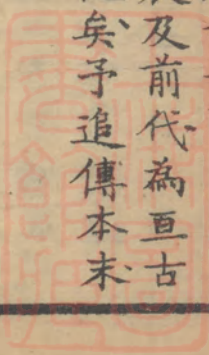 及前代為亘古
矣予追傳本末